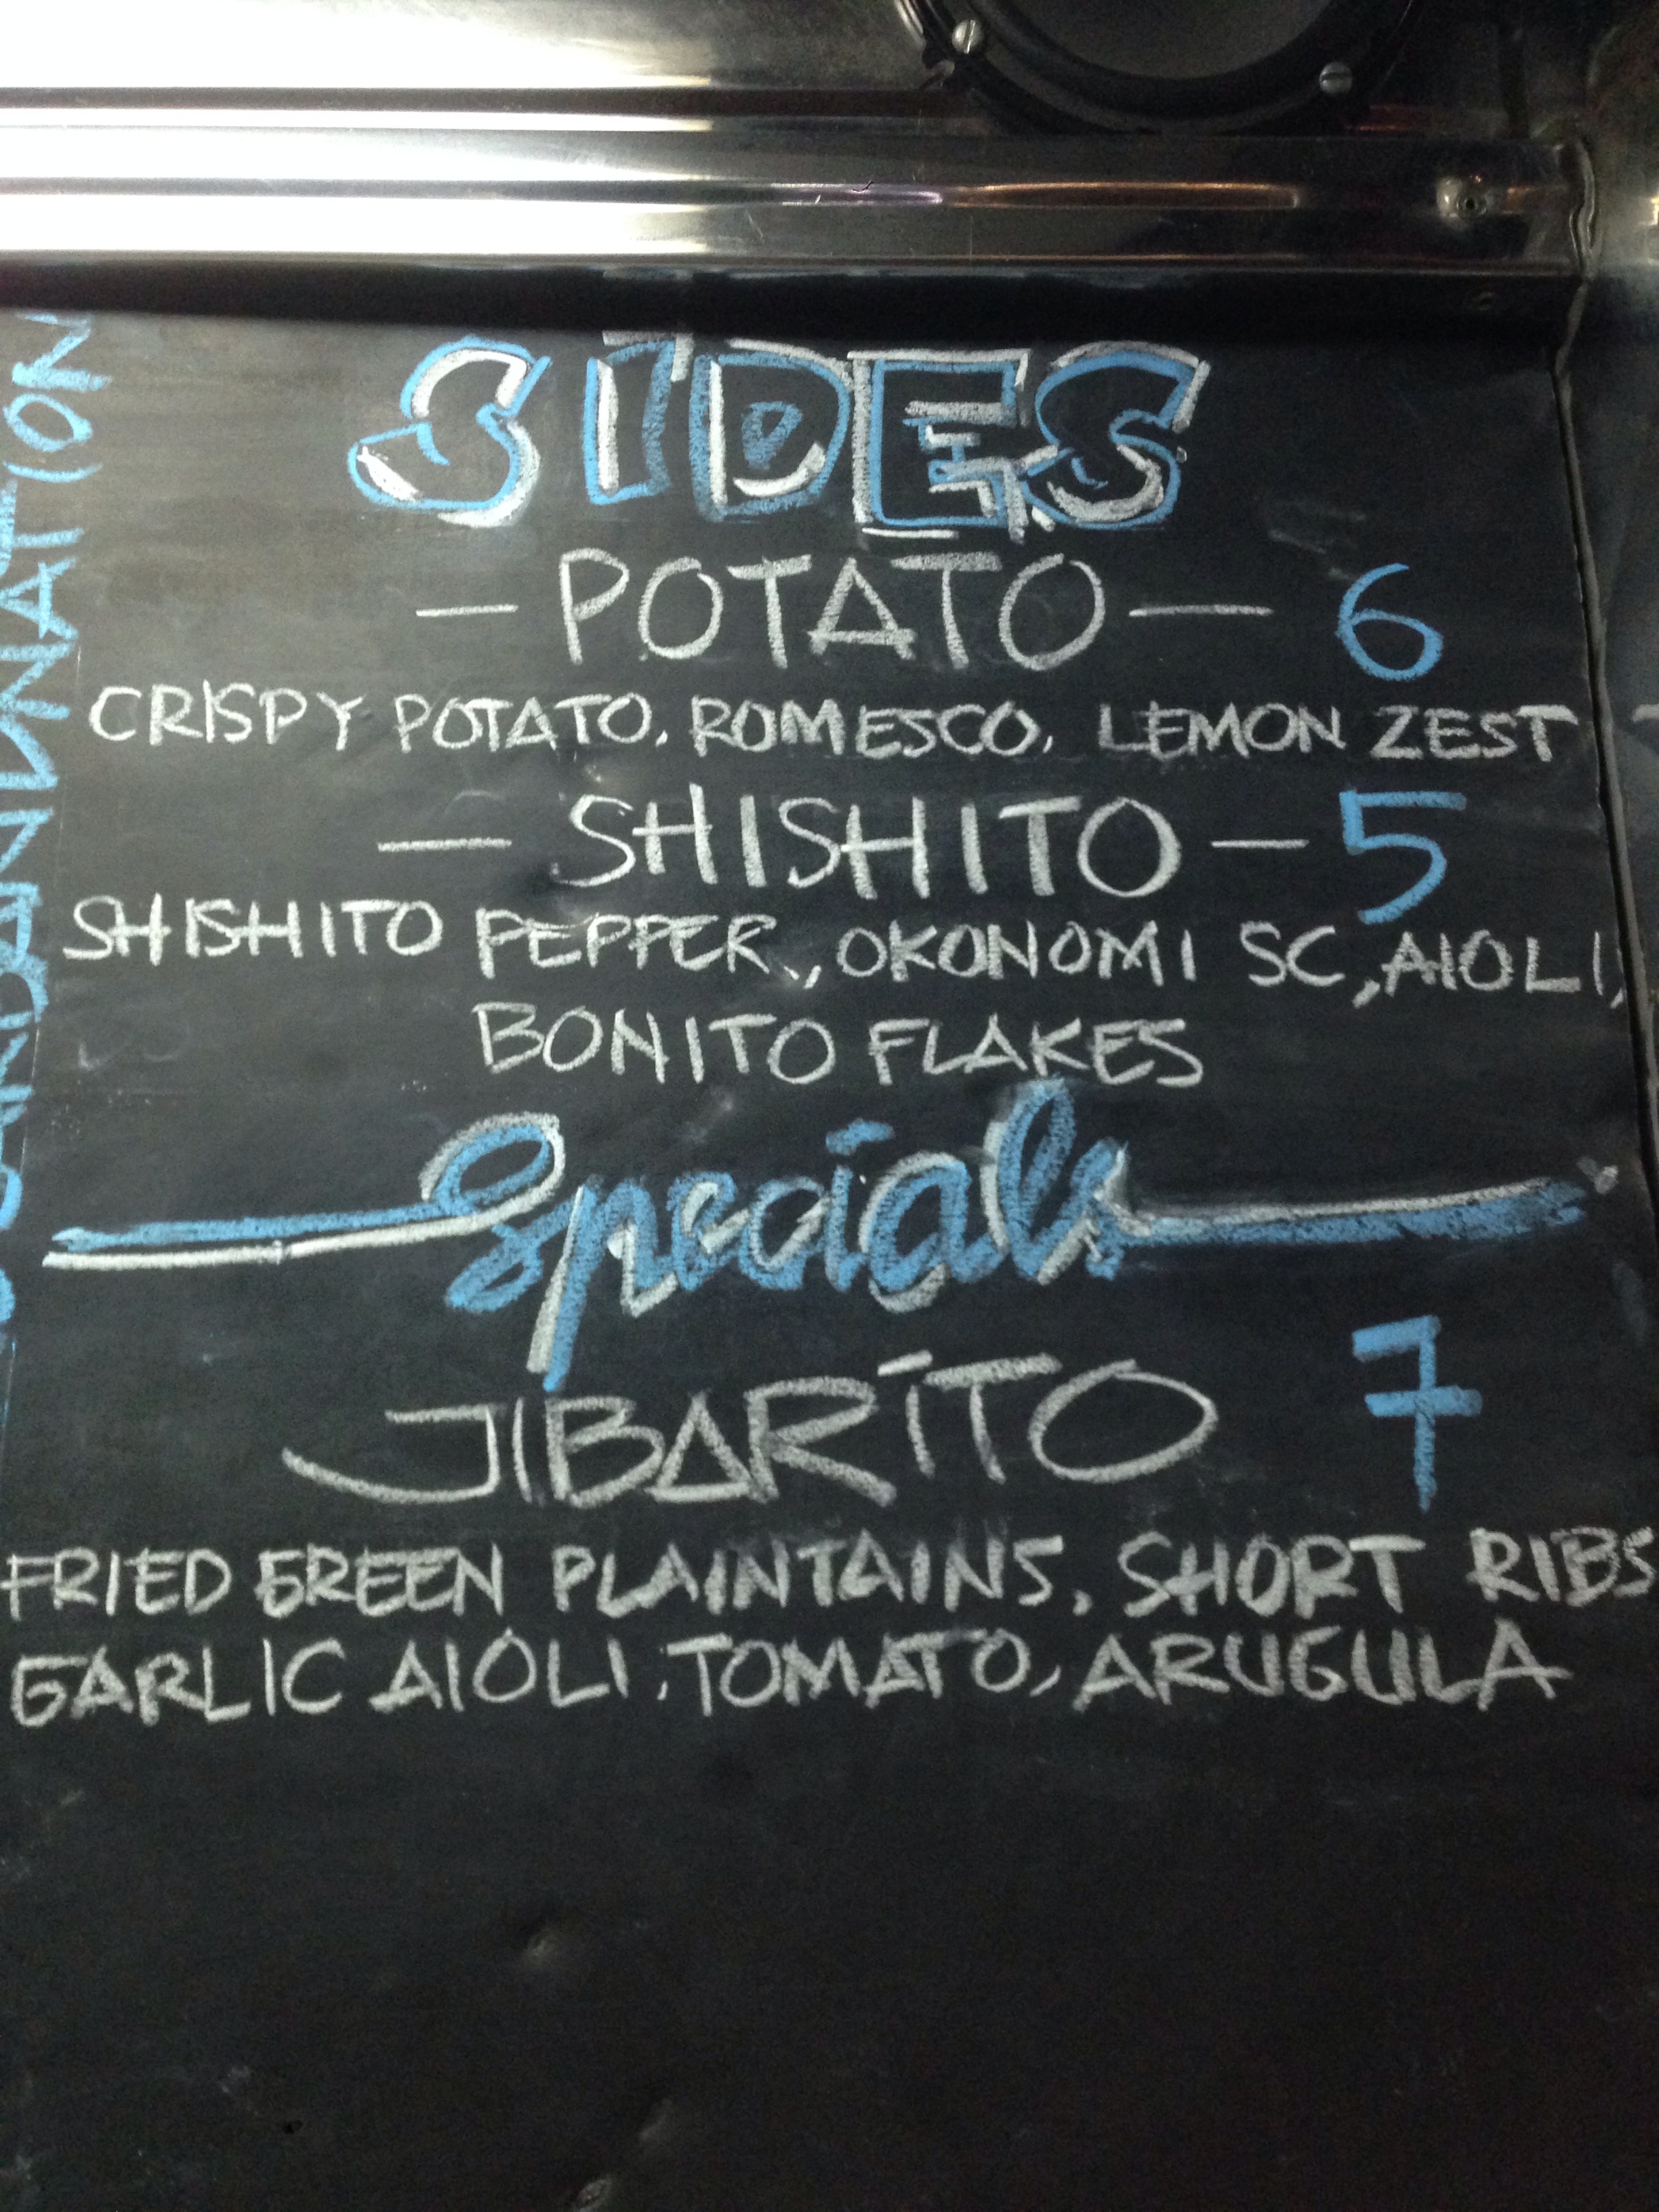 SIDES
—POTATO— 6
CRISPY POTATO, ROMESCO, LEMON ZEST
—SHISHITO— 5
SHISHITO PEPPER, OKONOMI SC, AIOLI,
BONITO FLAKES
Specials
JIBARITO 7
FRIED GREEN PLAINTAINS, SHORT RIBS
GARLIC AIOLI, TOMATO, ARUGULA